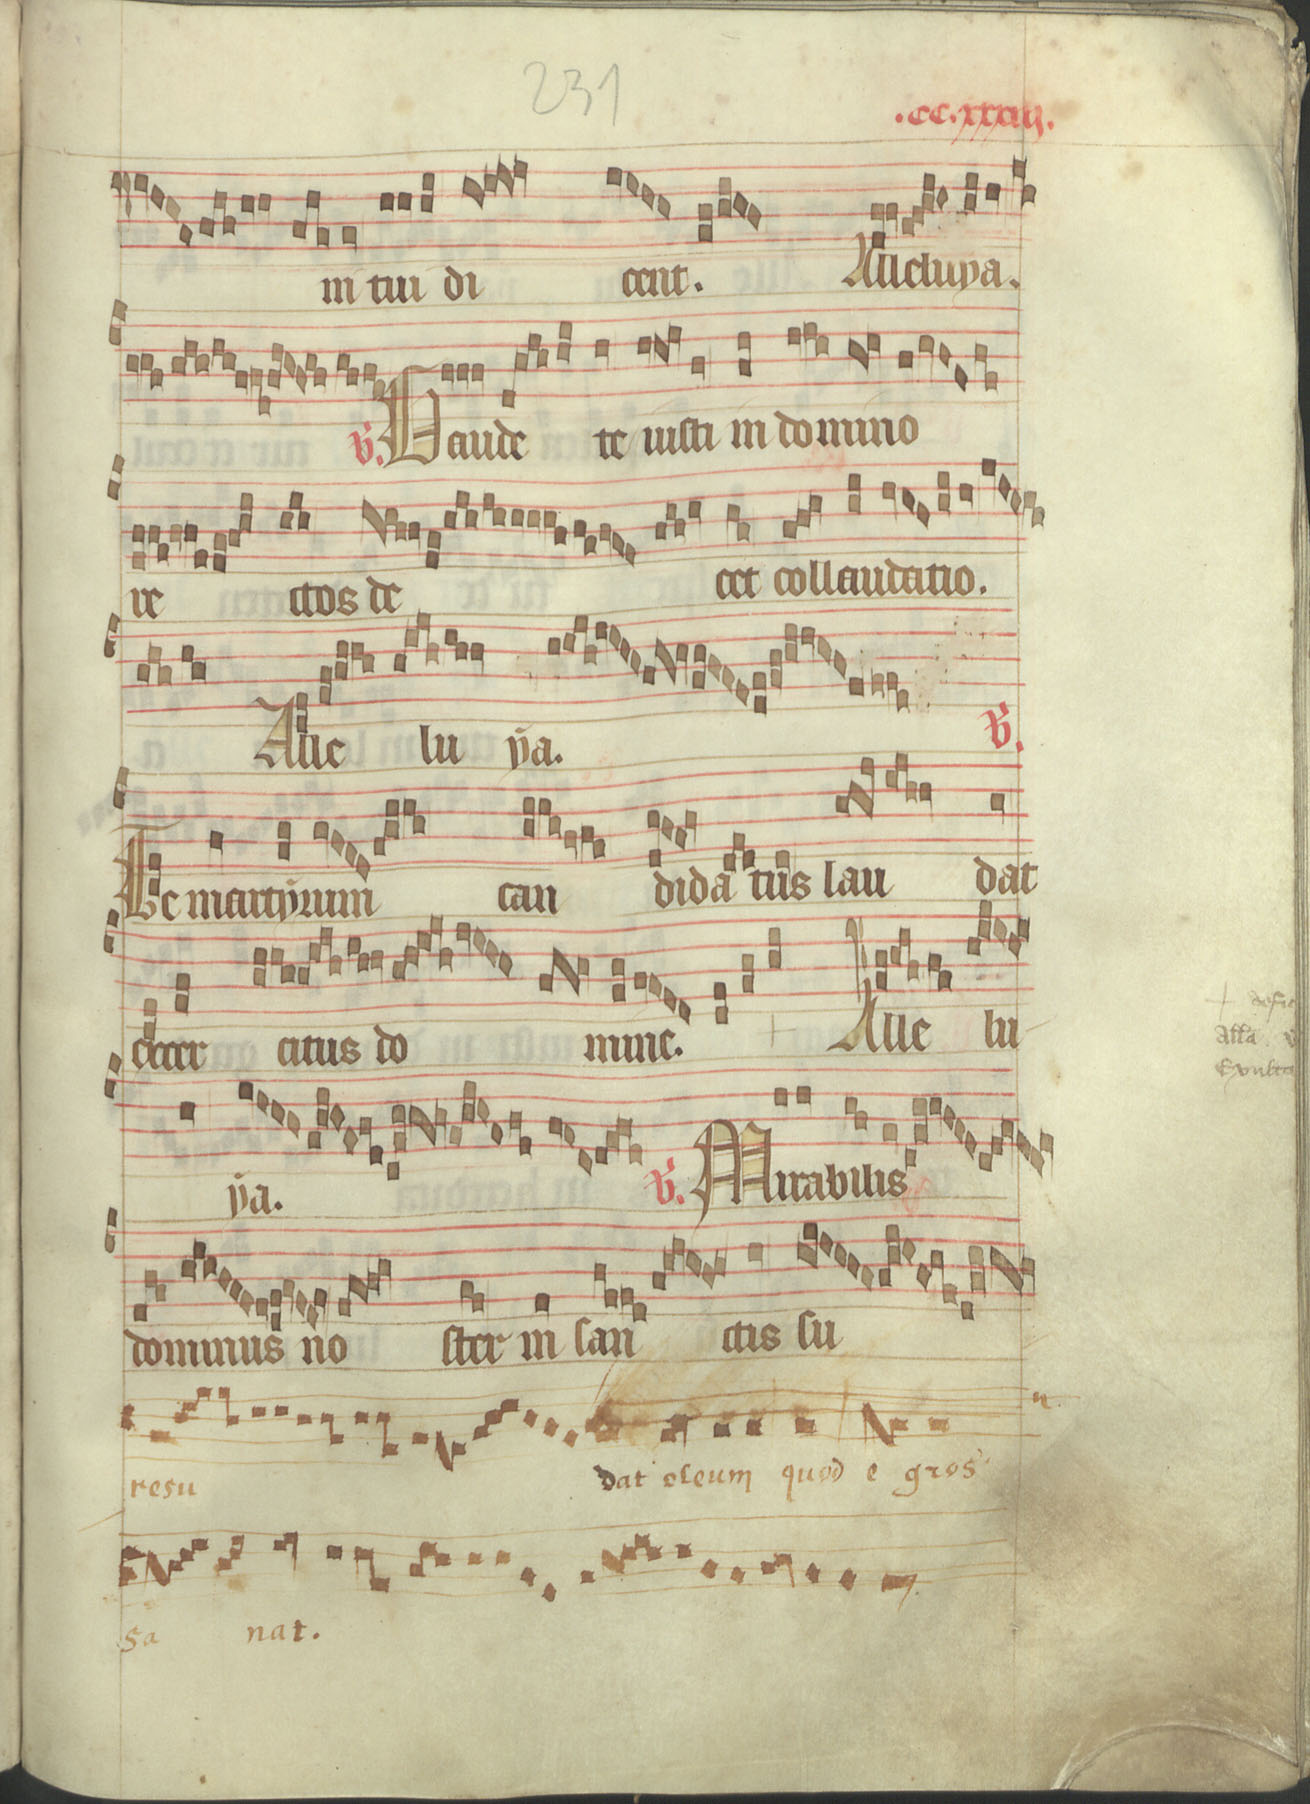 231
.cc.xxxiij.
in tui di cent. Alleluya.
v. Gaude te iusti in domino
re ctos de cet collaudatio.
Alle lu ya. v.
Te martyrum can dida tus lau dat
exer citus do mine. Alle lu
ya. v. Mirabilis
dominus no ster in san ctis su
resu dat oleum quod e gros
sa nat.